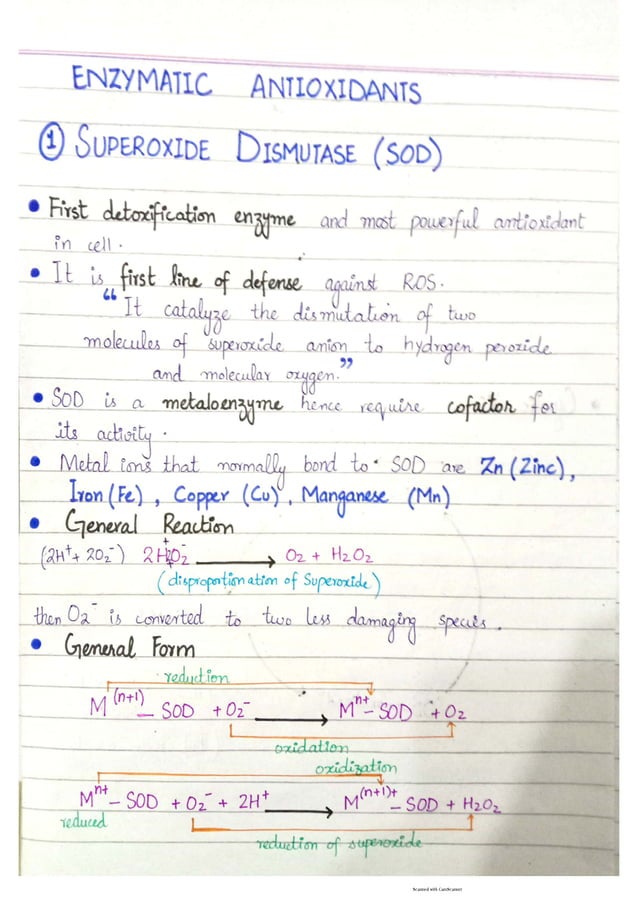 ENZYMATIC ANTIOXIDANTS
① SUPEROXIDE DISMUTASE (SOD)
• First detoxification enzyme and most powerful antioxidant
in cell.
• It is first line of defense against ROS.
“It catalyze the dismutation of two
molecules of superoxide anion to hydrogen peroxide
and molecular oxygen.”
• SOD is a metaloenzyme hence require cofactor for
its activity.
• Metal ions that normally bond to SOD are Zn (Zinc),
Iron (Fe), Copper (Cu), Manganese (Mn)
• General Reaction
(2H⁺ + 2O₂⁻) 2HO₂⁻ → O₂ + H₂O₂
(disproportionation of Superoxide)
then O₂⁻ is converted to two less damaging species.
• General Form
reduction
M⁽ⁿ⁺¹⁾ – SOD + O₂⁻ → Mⁿ⁺ – SOD + O₂
oxidation
oxidization
Mⁿ⁺ – SOD + O₂⁻ + 2H⁺ → M⁽ⁿ⁺¹⁾⁺ – SOD + H₂O₂
reduced
reduction of superoxide
Scanned with CamScanner